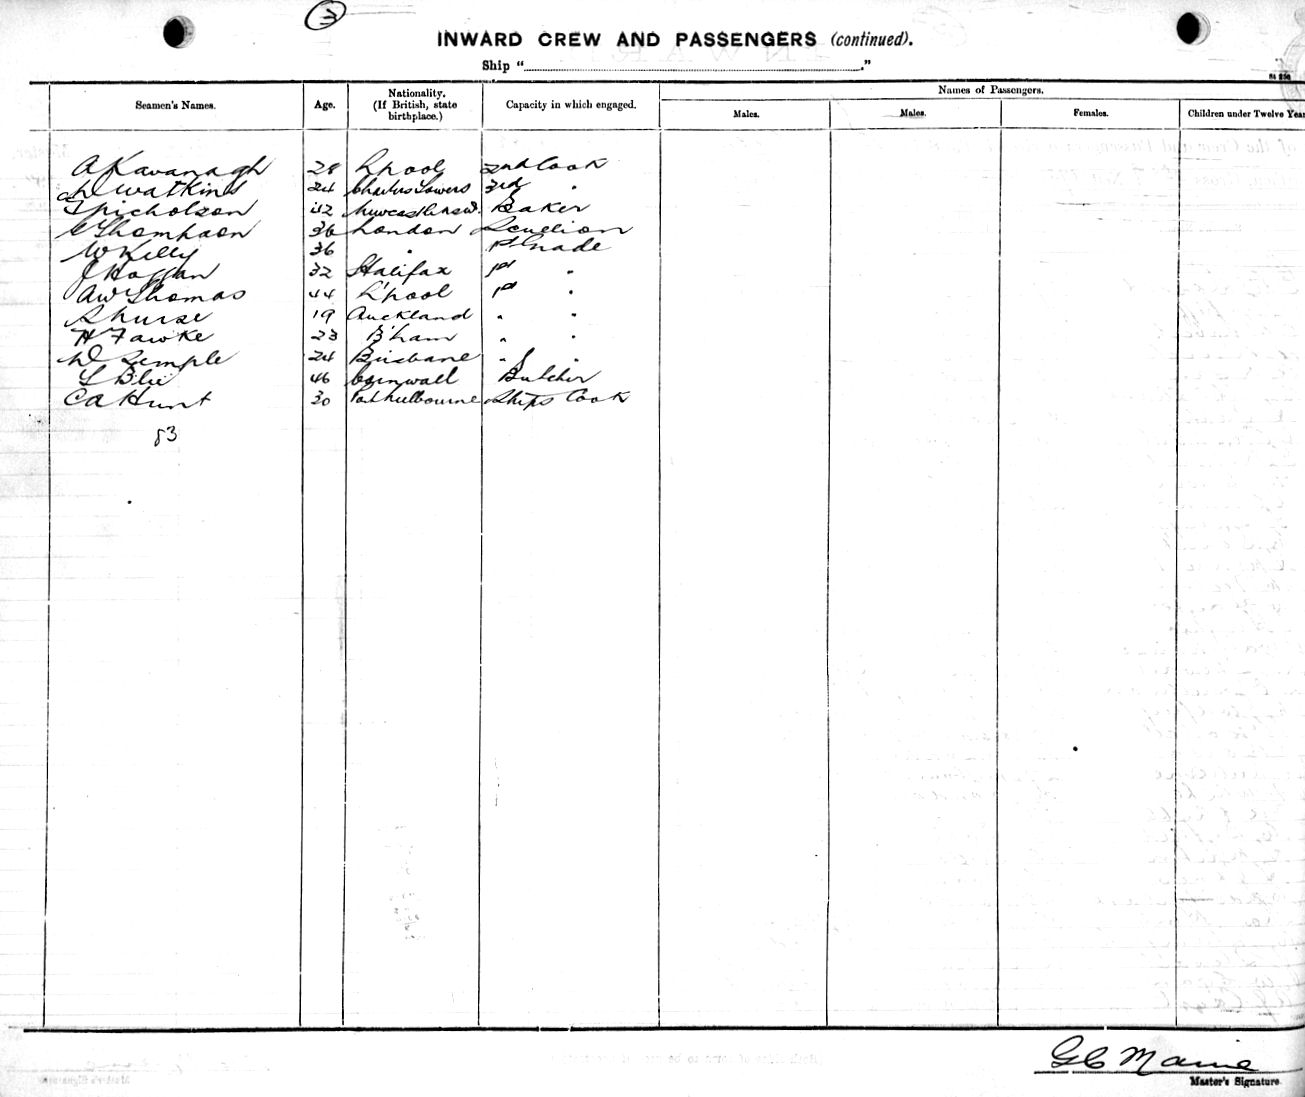 3
INWARD CREW AND PASSENGERS (continued).
Ship "
Seamen's Names. Age. Nationality. (If British, state birthplace.) Capacity in which engaged. Names of Passengers.
Males. Males. Females. Children under Twelve Year
A Kavanagh 28 L'pool 2nd Cook
Watkins 24 Charters Towers 3rd "
Nicholson 42 Newcastle NSW. Baker
C Thompson 36 London Scullion
W Kelly 36 "
J Hoggan 32 Halifax "
AW Thomas 44 L'pool "
19 Auckland " "
H Fawke 23 B'ham " "
W Temple 24 Brisbane " "
46 Cornwall Butcher
CA Hunt 30 Port Melbourne Ships Cook
83
Master's Signature.